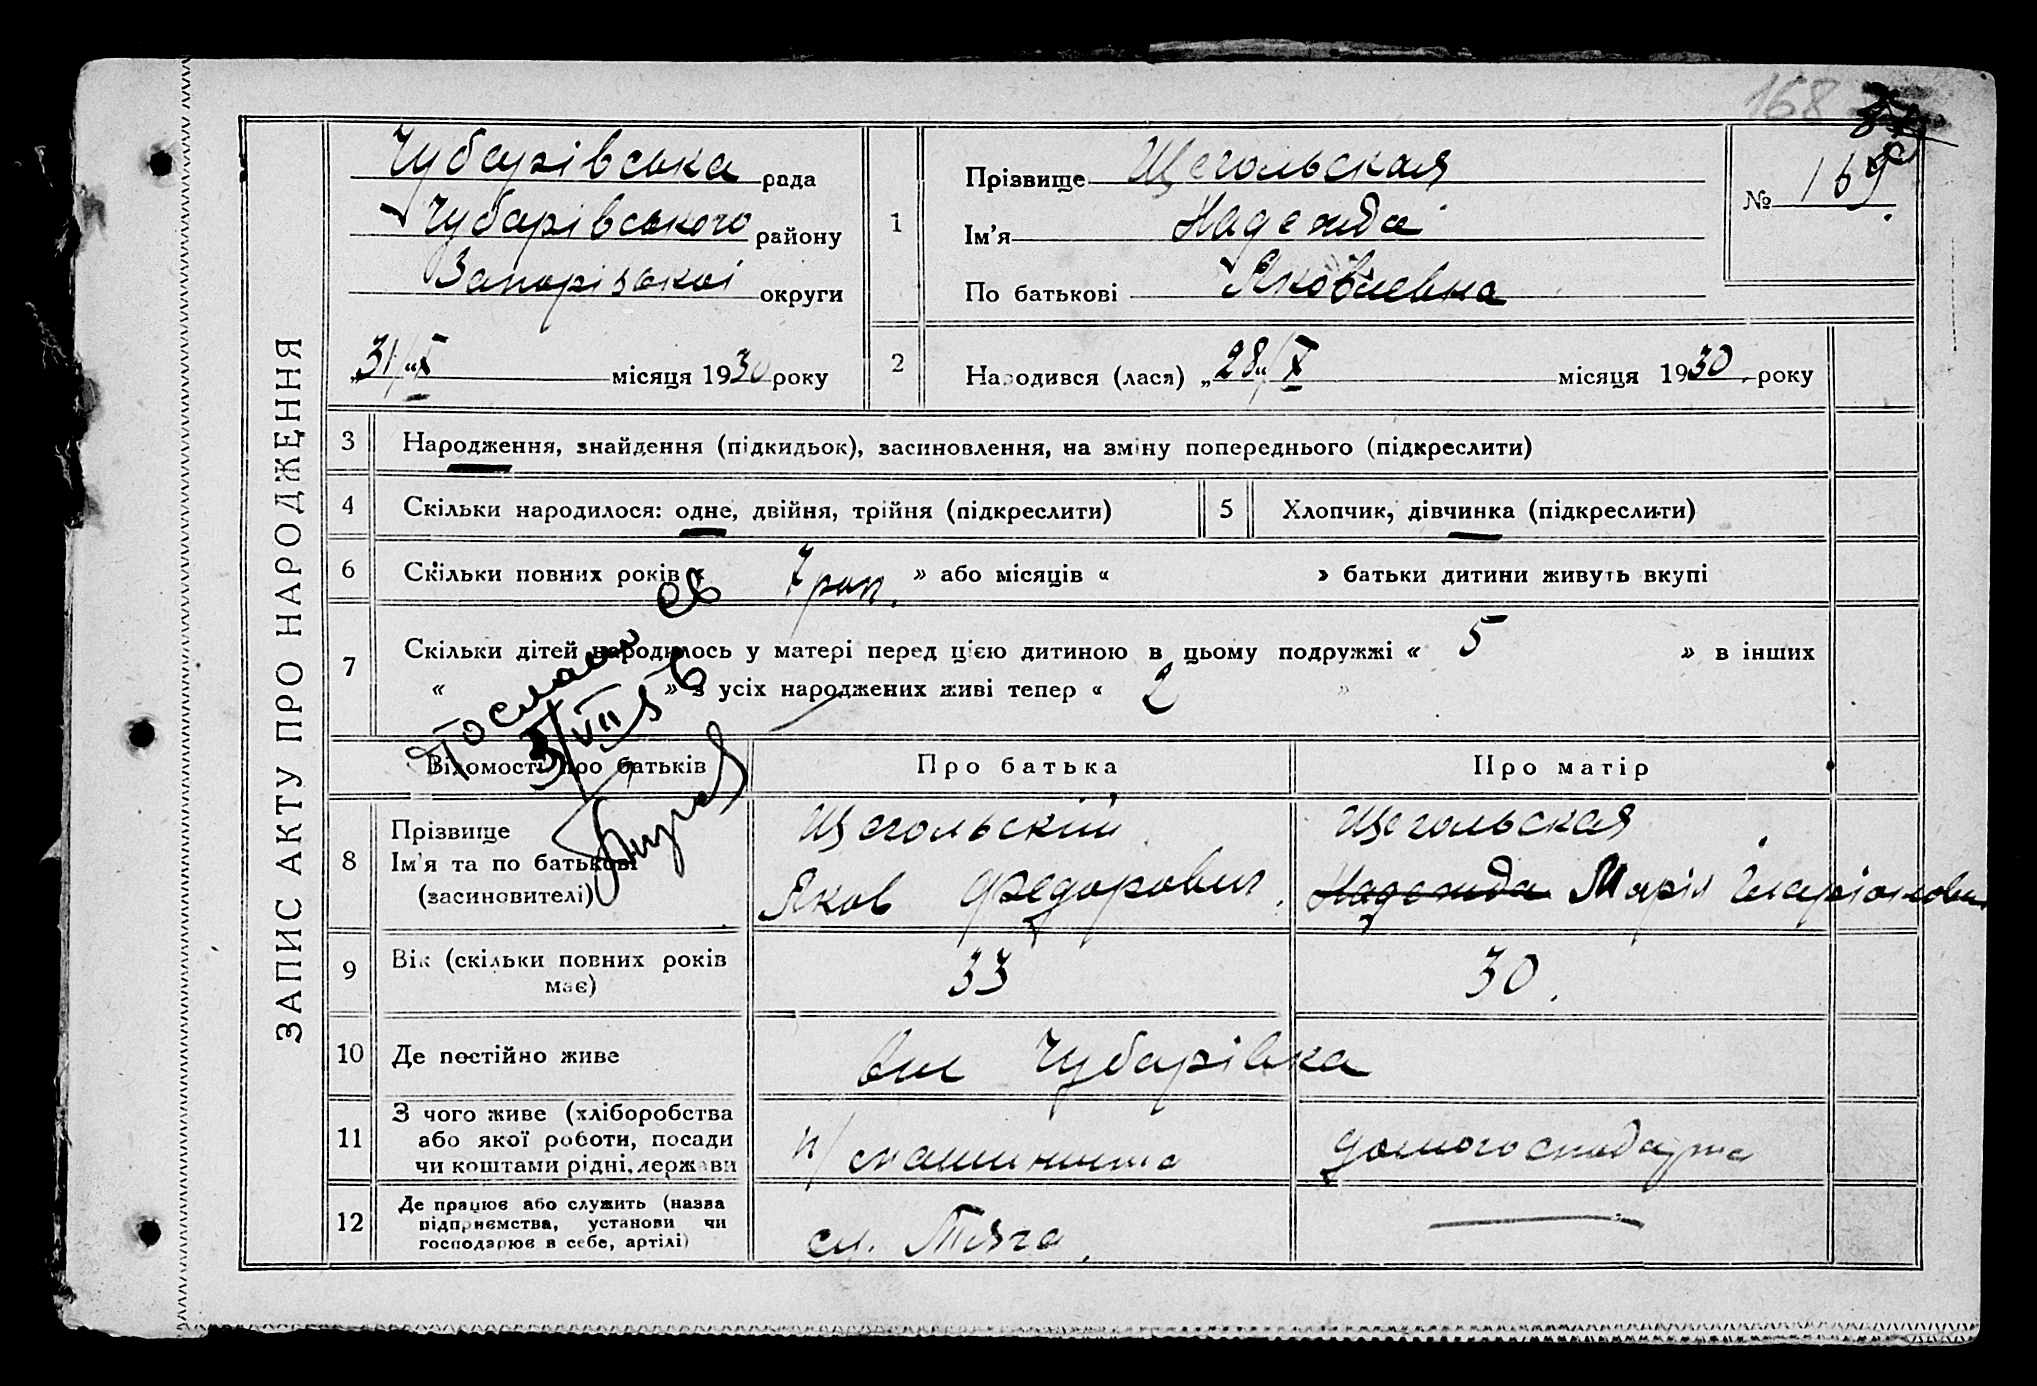 168
ЗАПИС АКТУ ПРО НАРОДЖЕННЯ
Чубарівська рада
Чубарівського району
Запорізької округи
„31/“X місяця 1930 року
1
Прізвище Щегольская
Ім'я Надежда
По батькові Яковлевна
№ 169.
2
Народився (лася) „28“/X місяця 1930 року
3 Народження, знайдення (підкидьок), засиновлення, на зміну попереднього (підкреслити)
4 Скільки народилося: одне, двійня, трійня (підкреслити)
5 Хлопчик, дівчинка (підкреслити)
6 Скільки повних років « 7 рап. » або місяців « » батьки дитини живуть вкупі
7 Скільки дітей народилось у матері перед цією дитиною в цьому подружжі « 5 » в інших
« » з усіх народжених живі тепер « 2 »
Послано св
Відомості про батьків
Про батька
Про матір
8 Прізвище
Ім'я та по батькові
(засиновителі)
Щегольский
Яков Федорович.
Щегольская
Надежда Марія Іларіоновн
9 Вік (скільки повних років
має)
33
30.
10 Де постійно живе
Чубарівка
11 З чого живе (хліборобства
або якої роботи, посади
чи коштами рідні, держави
п/машиниста
домогосподарка
12 Де працює або служить (назва
підприємства, установи чи
господарює в себе, артілі)
сл. Тяга.